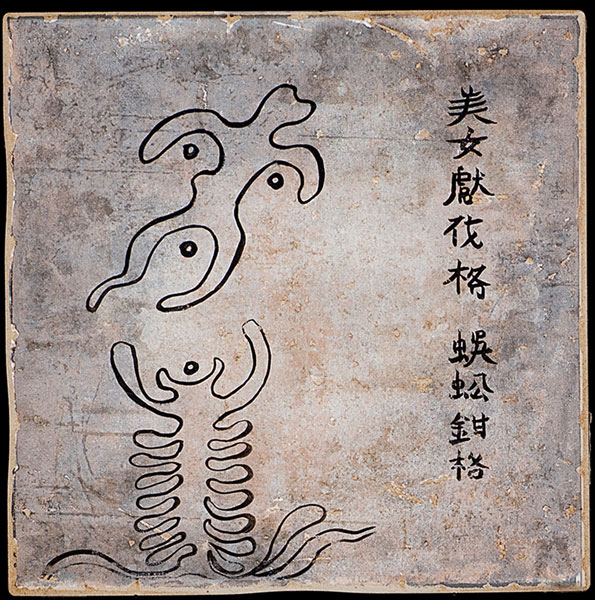 美女獻伐格 蜈蚣鉗格